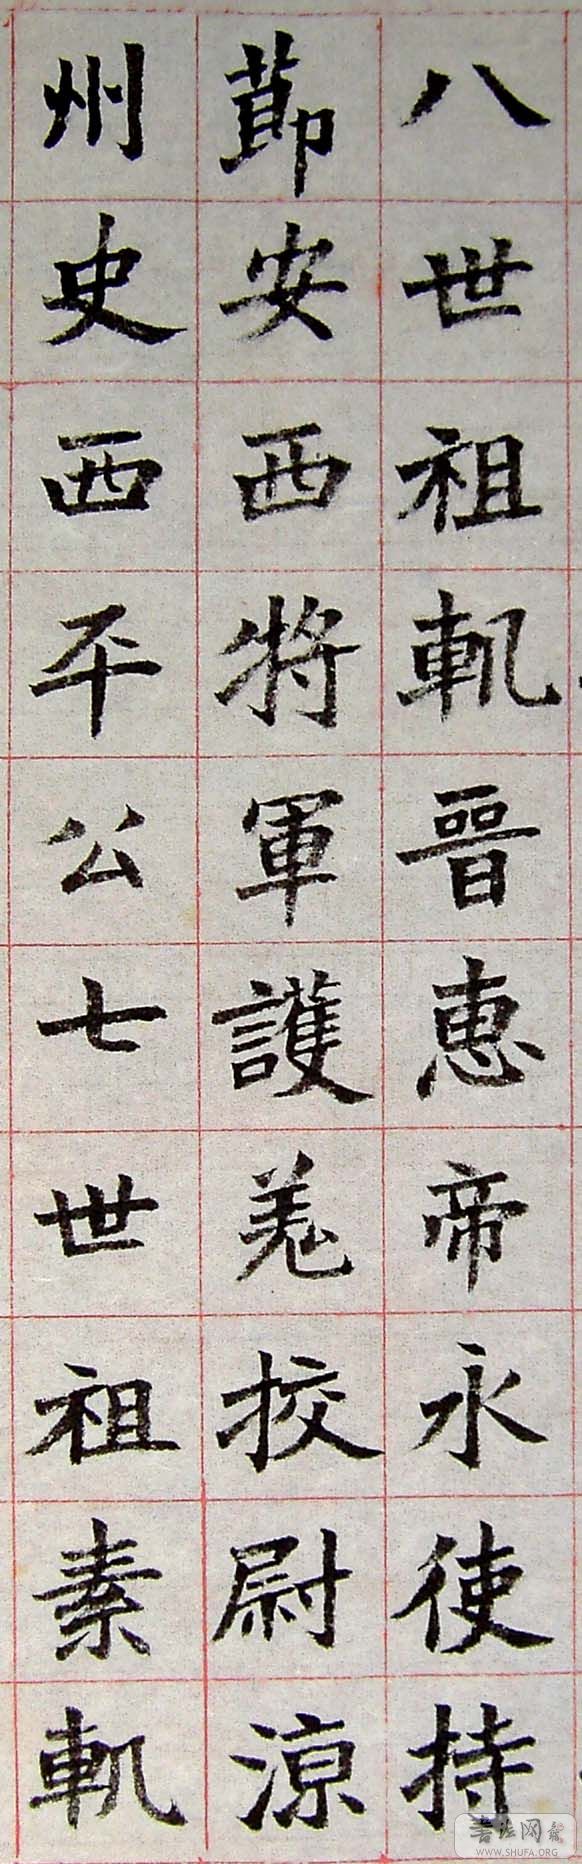 八世祖軌晉惠帝永使持
節安西將軍護羌校尉涼
州史西平公七世祖素軌
書法网
WWW.SHUFA.ORG